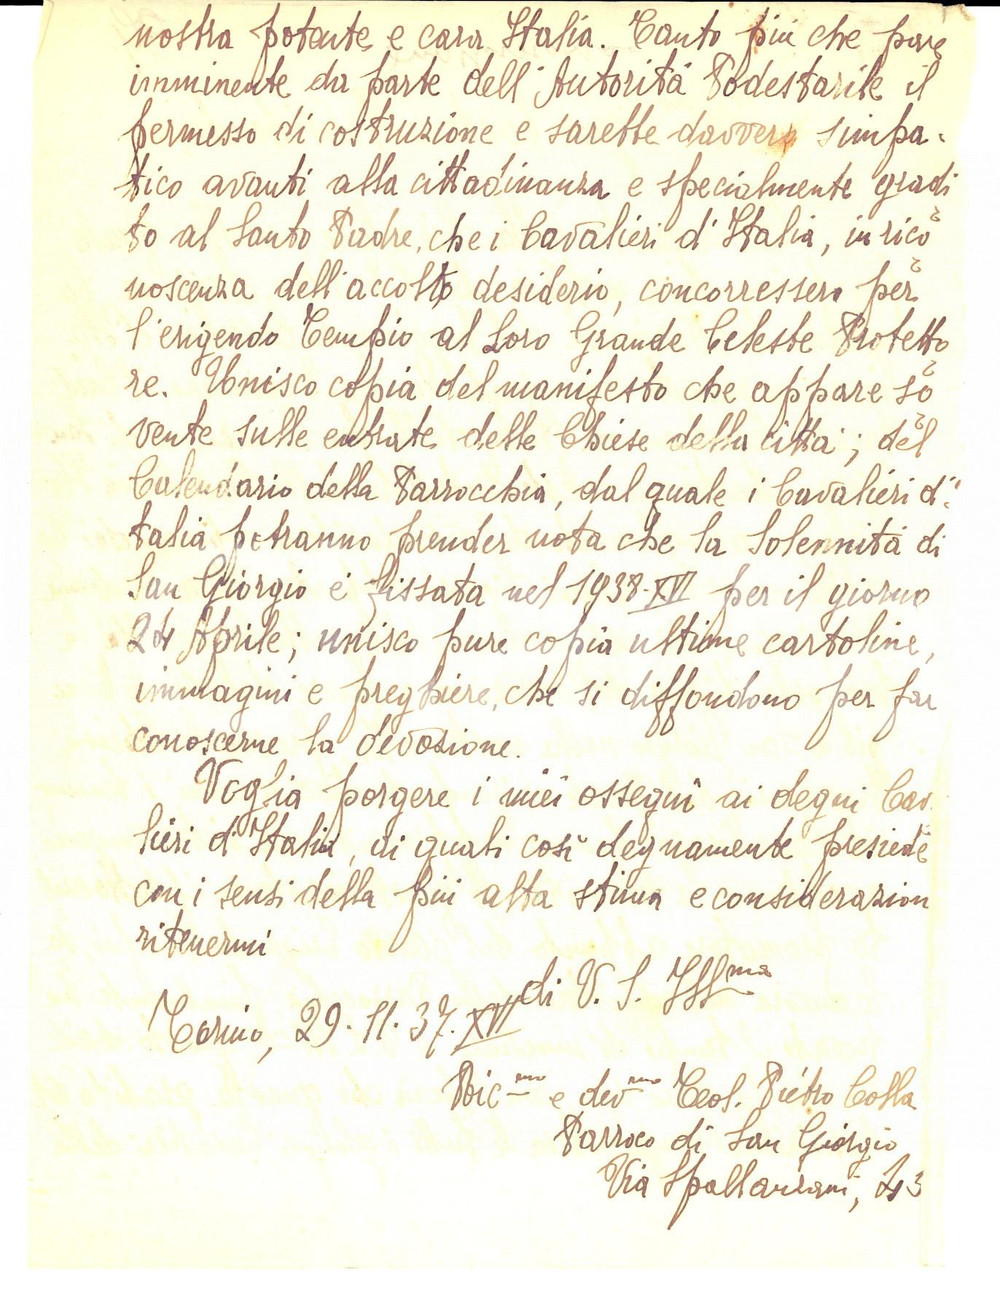 nostra potente e cara Italia. Tanto più che pare
imminente da parte dell'Autorità Podestarile il
permesso di costruzione e sarebbe davvero simpa-
tico avanti alla cittadinanza e specialmente gradi
to al Santo Padre, che i Cavalieri d'Italia, in rico
noscenza dell'accolto desiderio, concorressero per
l'erigendo Tempio al Loro Grande Celeste Protetto
re. Unisco copia del manifesto che appare so
vente sulle entrate delle Chiese della città; del
Calendario della Parrocchia, dal quale i Cavalieri d'I
talia potranno prender nota che la Solennità di
San Giorgio è fissata nel 1938-XVI per il giorno
24 Aprile; unisco pure copia ultime cartoline,
immagini e preghiere, che si diffondono per far
conoscerne la devozione.
Voglia porgere i miei ossequi ai degni Cava
lieri d'Italia, ai quali così degnamente presiede
con i sensi della più alta stima e considerazion
ritenermi
di V. S. Ill.ma
Torino, 29.11.37.XVI
e dev.mo Teol. Pietro Colla
Parroco di San Giorgio
Via Spallanzani,